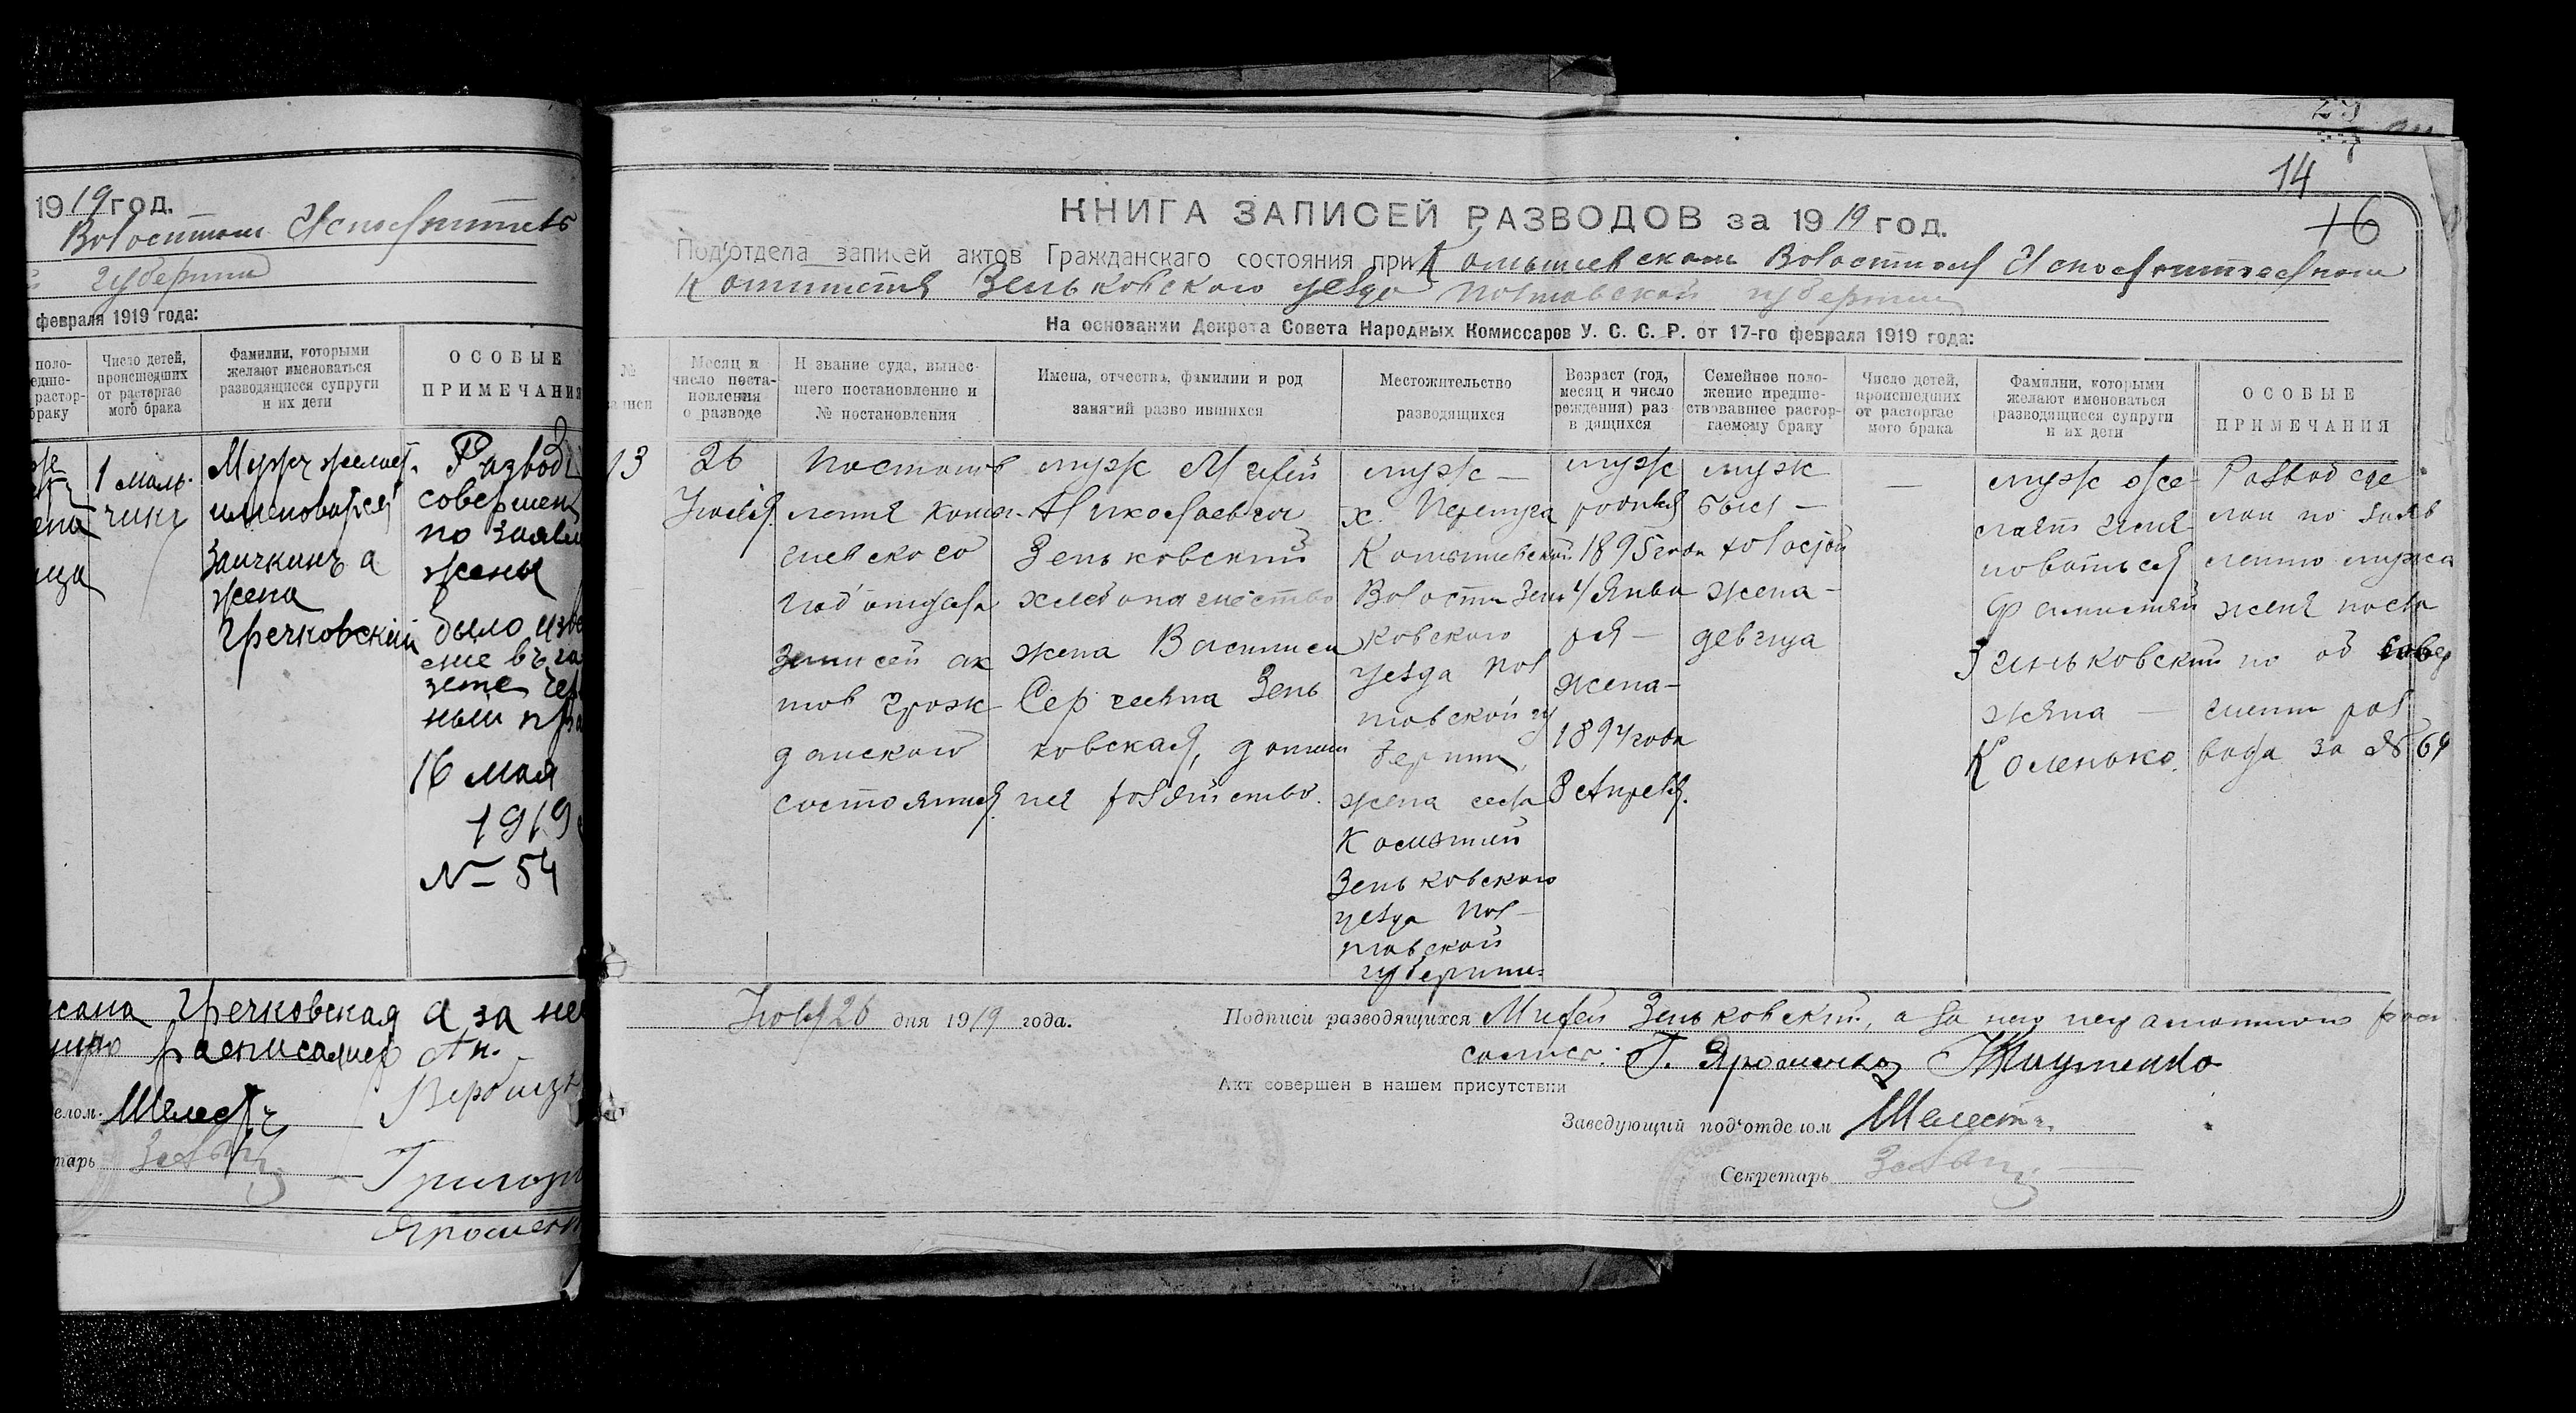 1919 год.
Волостном Исполнител
губернии
февраля 1919 года:
поло-
едше-
растор-
браку
Число детей,
происшедших
от расторгае
мого брака
Фамилии, которыми
желают именоваться
разводящиеся супруги
и их дети
ОСОБЫЕ
ПРИМЕЧАНИЯ
1 маль-
чикъ
Мужъ желает
именоваться
Заичкинъ а
жена
Гречковской
Разводъ
совершен
по заявл
жены
было изве
ние въ га
зете
ным
16 мая
1919
№ 54
Гречковская а за не
расписался Ан.
Вербицк
елом. Шелестъ
тарь
Григори
Ярошенк
14
16
КНИГА ЗАПИСЕЙ РАЗВОДОВ за 1919 год.
Под'отдела записей актов Гражданскаго состояния при Комышевском Волостном Исполнительном
Комитетя Зеньковского уезда Полтавской губернии
На основании Декрета Совета Народных Комиссаров У. С. С. Р. от 17-го февраля 1919 года:
№
записи
Месяц и
число поста-
новления
о разводе
Н звание суда, вынес-
шего постановление и
№ постановления
Имена, отчества, фамилии и род
занятий разво ившихся
Местожительство
разводящихся
Возраст (год,
месяц и число
рождения) раз
в дящихся
Семейное поло-
жение предше-
ствовавшее растор-
гаемому браку
Число детей,
происшедших
от расторгае
мого брака
Фамилии, которыми
желают именоваться
разводящиеся супруги
и их дети
ОСОБЫЕ
ПРИМЕЧАНИЯ
13
26
Июля
Постанов
ления комы-
шевского
под'отдела
записей ак
тов граж
данского
состояния
муж
Николаевич
Зеньковский
хлебопашество
жена Василиса
Сергеевна Зень
ковская, домаш
нея хозяйство.
муж —
х. Перелуга
Комышевской
Волости Зень
ковского
уезда Пол
тавской гу
бернии,
жена села
Комыший
Зеньковского
уезда Пол-
тавской
губернии.
муж
родился
1895 года
4 Янва
ря —
жена-
1894 года
8 Апреля.
муж
был —
холостой
жена-
девица
—
муж же-
лает имя
новаться
Фамилией
Зиньковский
жена —
Коленько.
Развод сде
лан по заяв
лению мужа
женя посла
но об совер
шении раз
вода за № 69
Июля 26 дня 1919 года.
Подписи разводящихся Зеньковский, а за него неграмотного распи
сался: Г. Ярошенко
Акт совершен в нашем присутствии
Заведующий под'отделом Шелестъ.
Секретарь